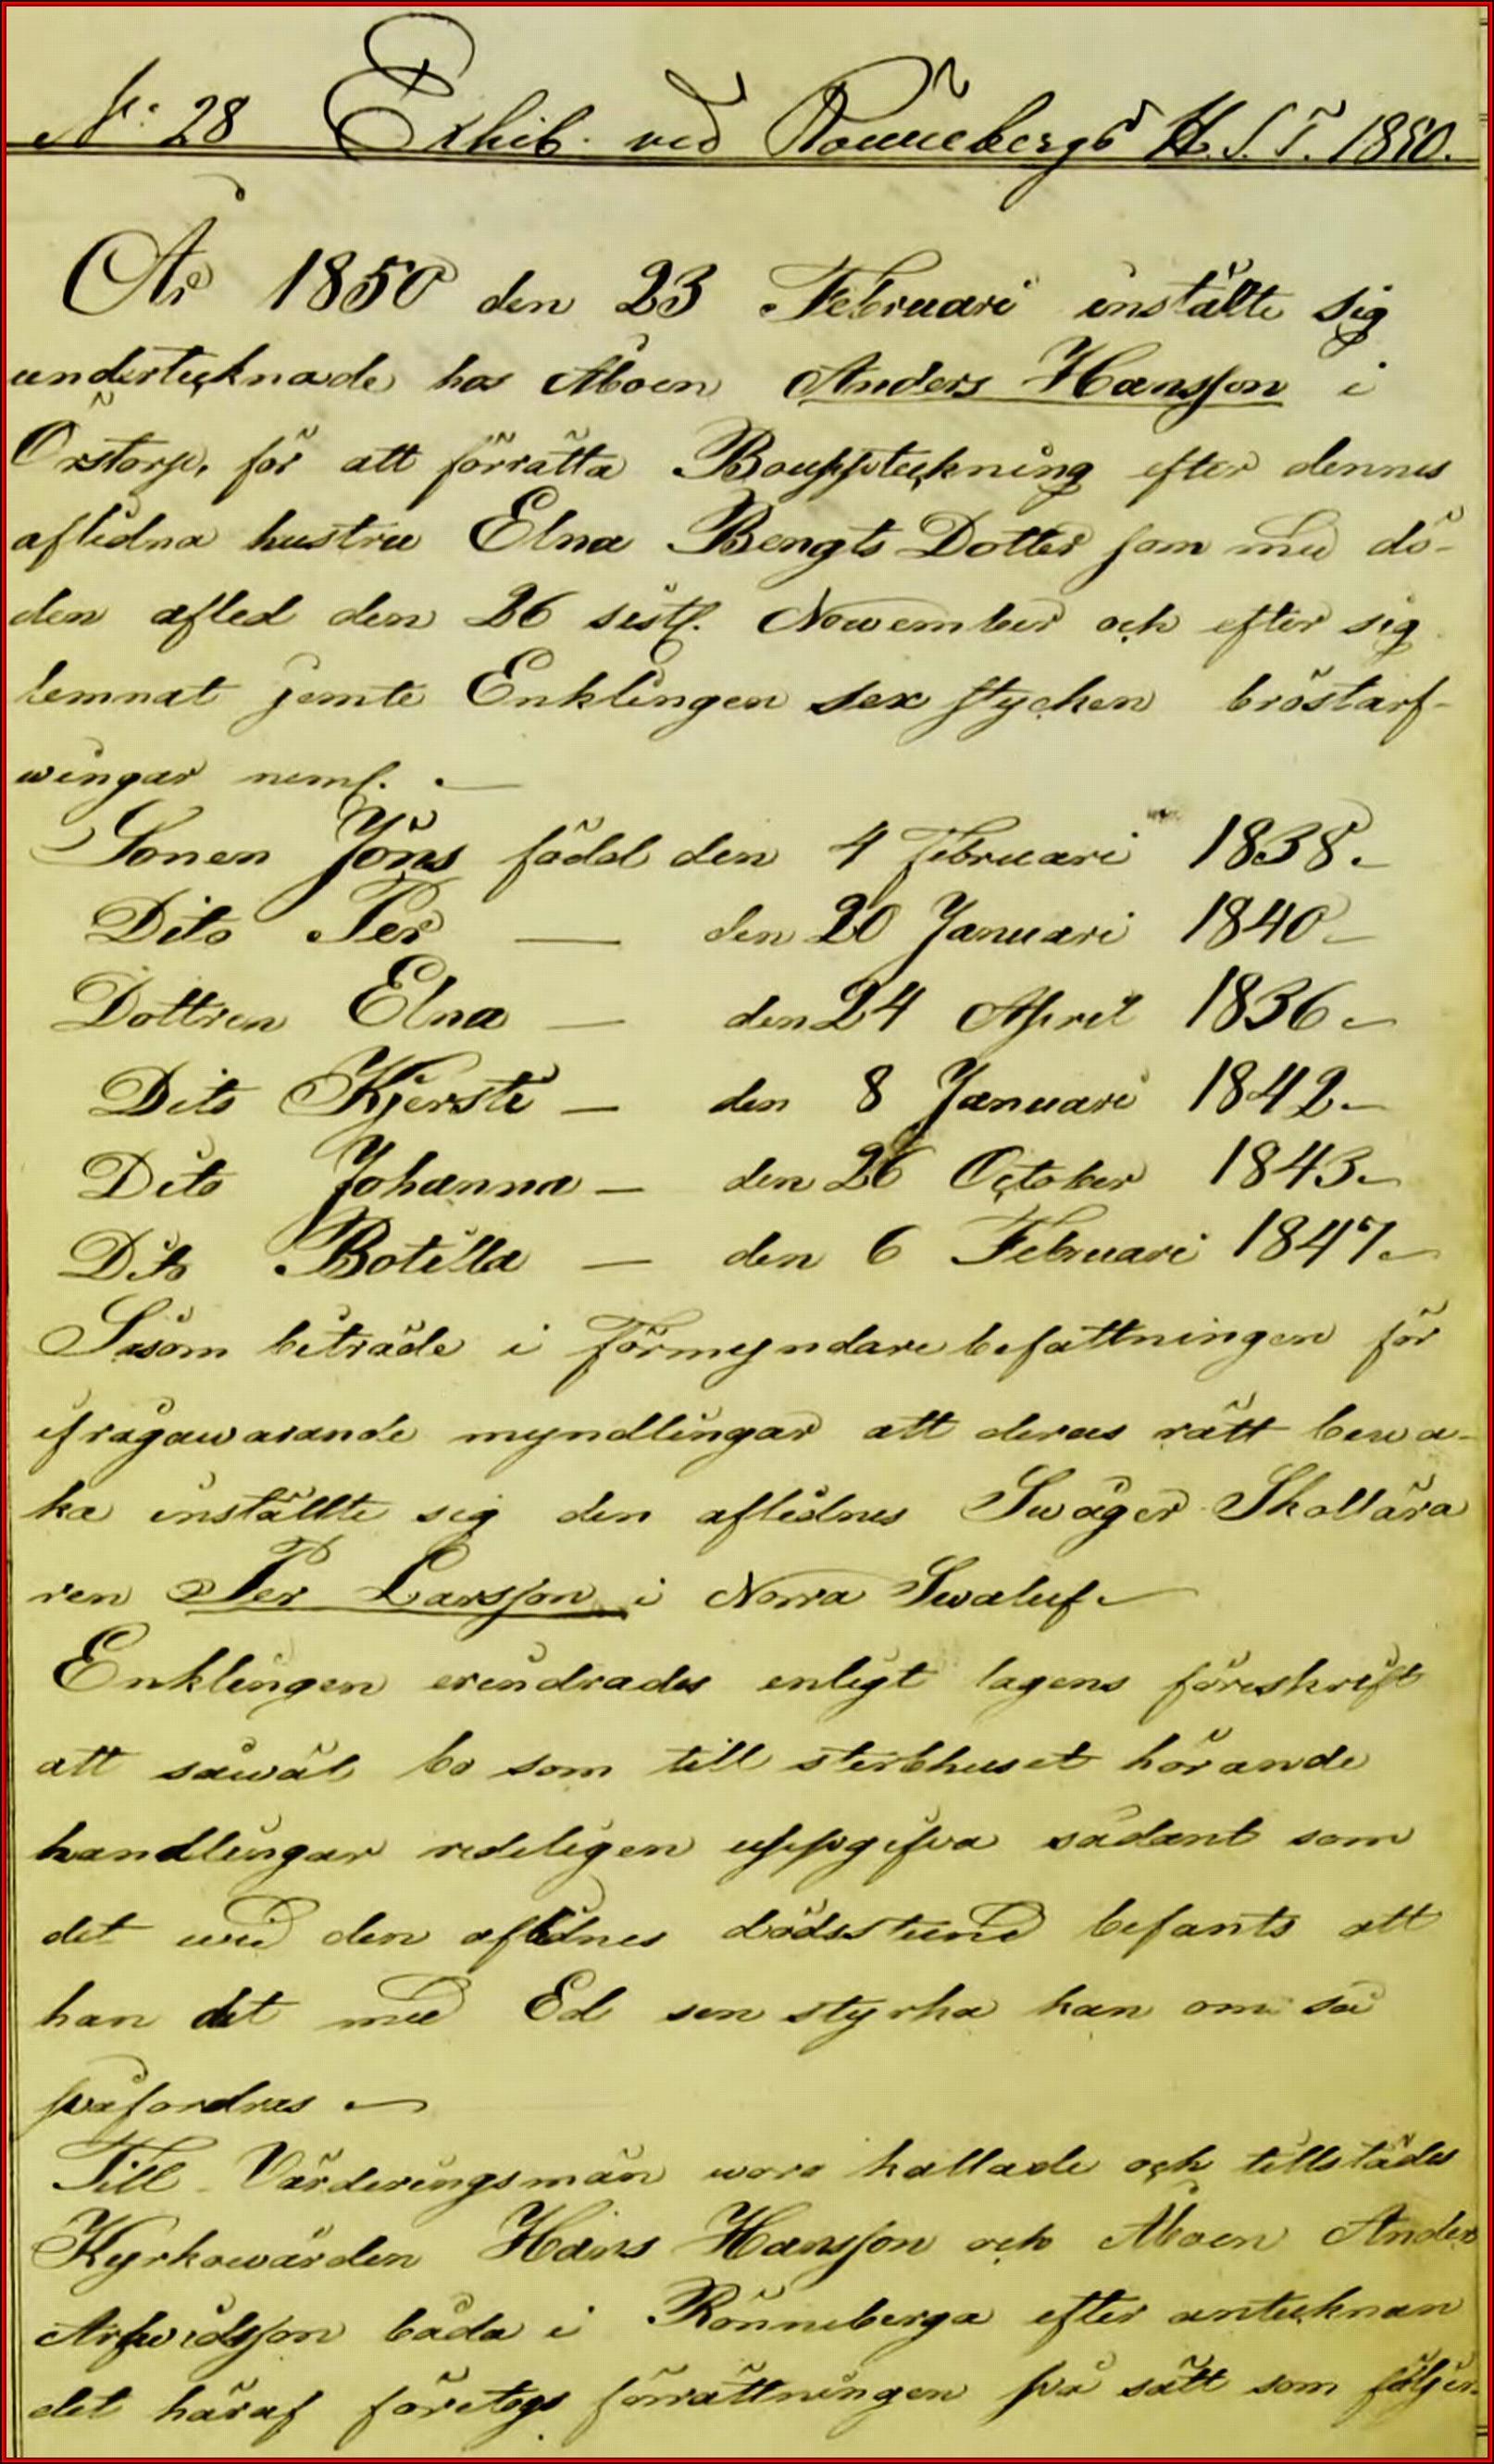 N:o 28 Exhib. vid Rönnebergs H. S. T. 1850.
År 1850 den 23 Februari instälte sig
undertecknade hos Åboen Anders Hansson i
Oxtorp, för att förrätta Bouppteckning efter dennes
aflidna hustru Elna Bengts Dotter som med dö-
den afled den 26 sistl. Nowember och efter sig
lemnat jemte Enklingen sex stycken bröstarf-
wingar neml. —
Sonen Jöns född den 4 Februari 1838. –
Dito Per — den 20 Januari 1840 –
Dottren Elna — den 24 April 1836 –
Dito Kjersti — den 8 Januari 1842 –
Dito Johanna — den 26 October 1843 –
Dito Botilla — den 6 Februari 1847 –
Såsom biträde i Förmyndare befattningen för
ifrågawarande myndlingar att deras rätt bewa-
ka inställte sig den aflidnes Swåger Skollära
ren Per Larsson i Norra Swalöf –
Enklingen erindrades enligt lagens föreskrift
att såwäl bo som till sterbhuset hörande
handlingar redeligen uppgifva sådant som
det wid den aflidnes dödsstund befants att
han det med Ed sen styrka kan om så
påfordras –
Till Värderingsmän woro kallade och tillstädes
Kyrkowärden Hans Hansson och Åboen Anders
Arfwidsson båda i Rönneberga efter antecknan
det häraf företogs förrättningen på sätt som följer.